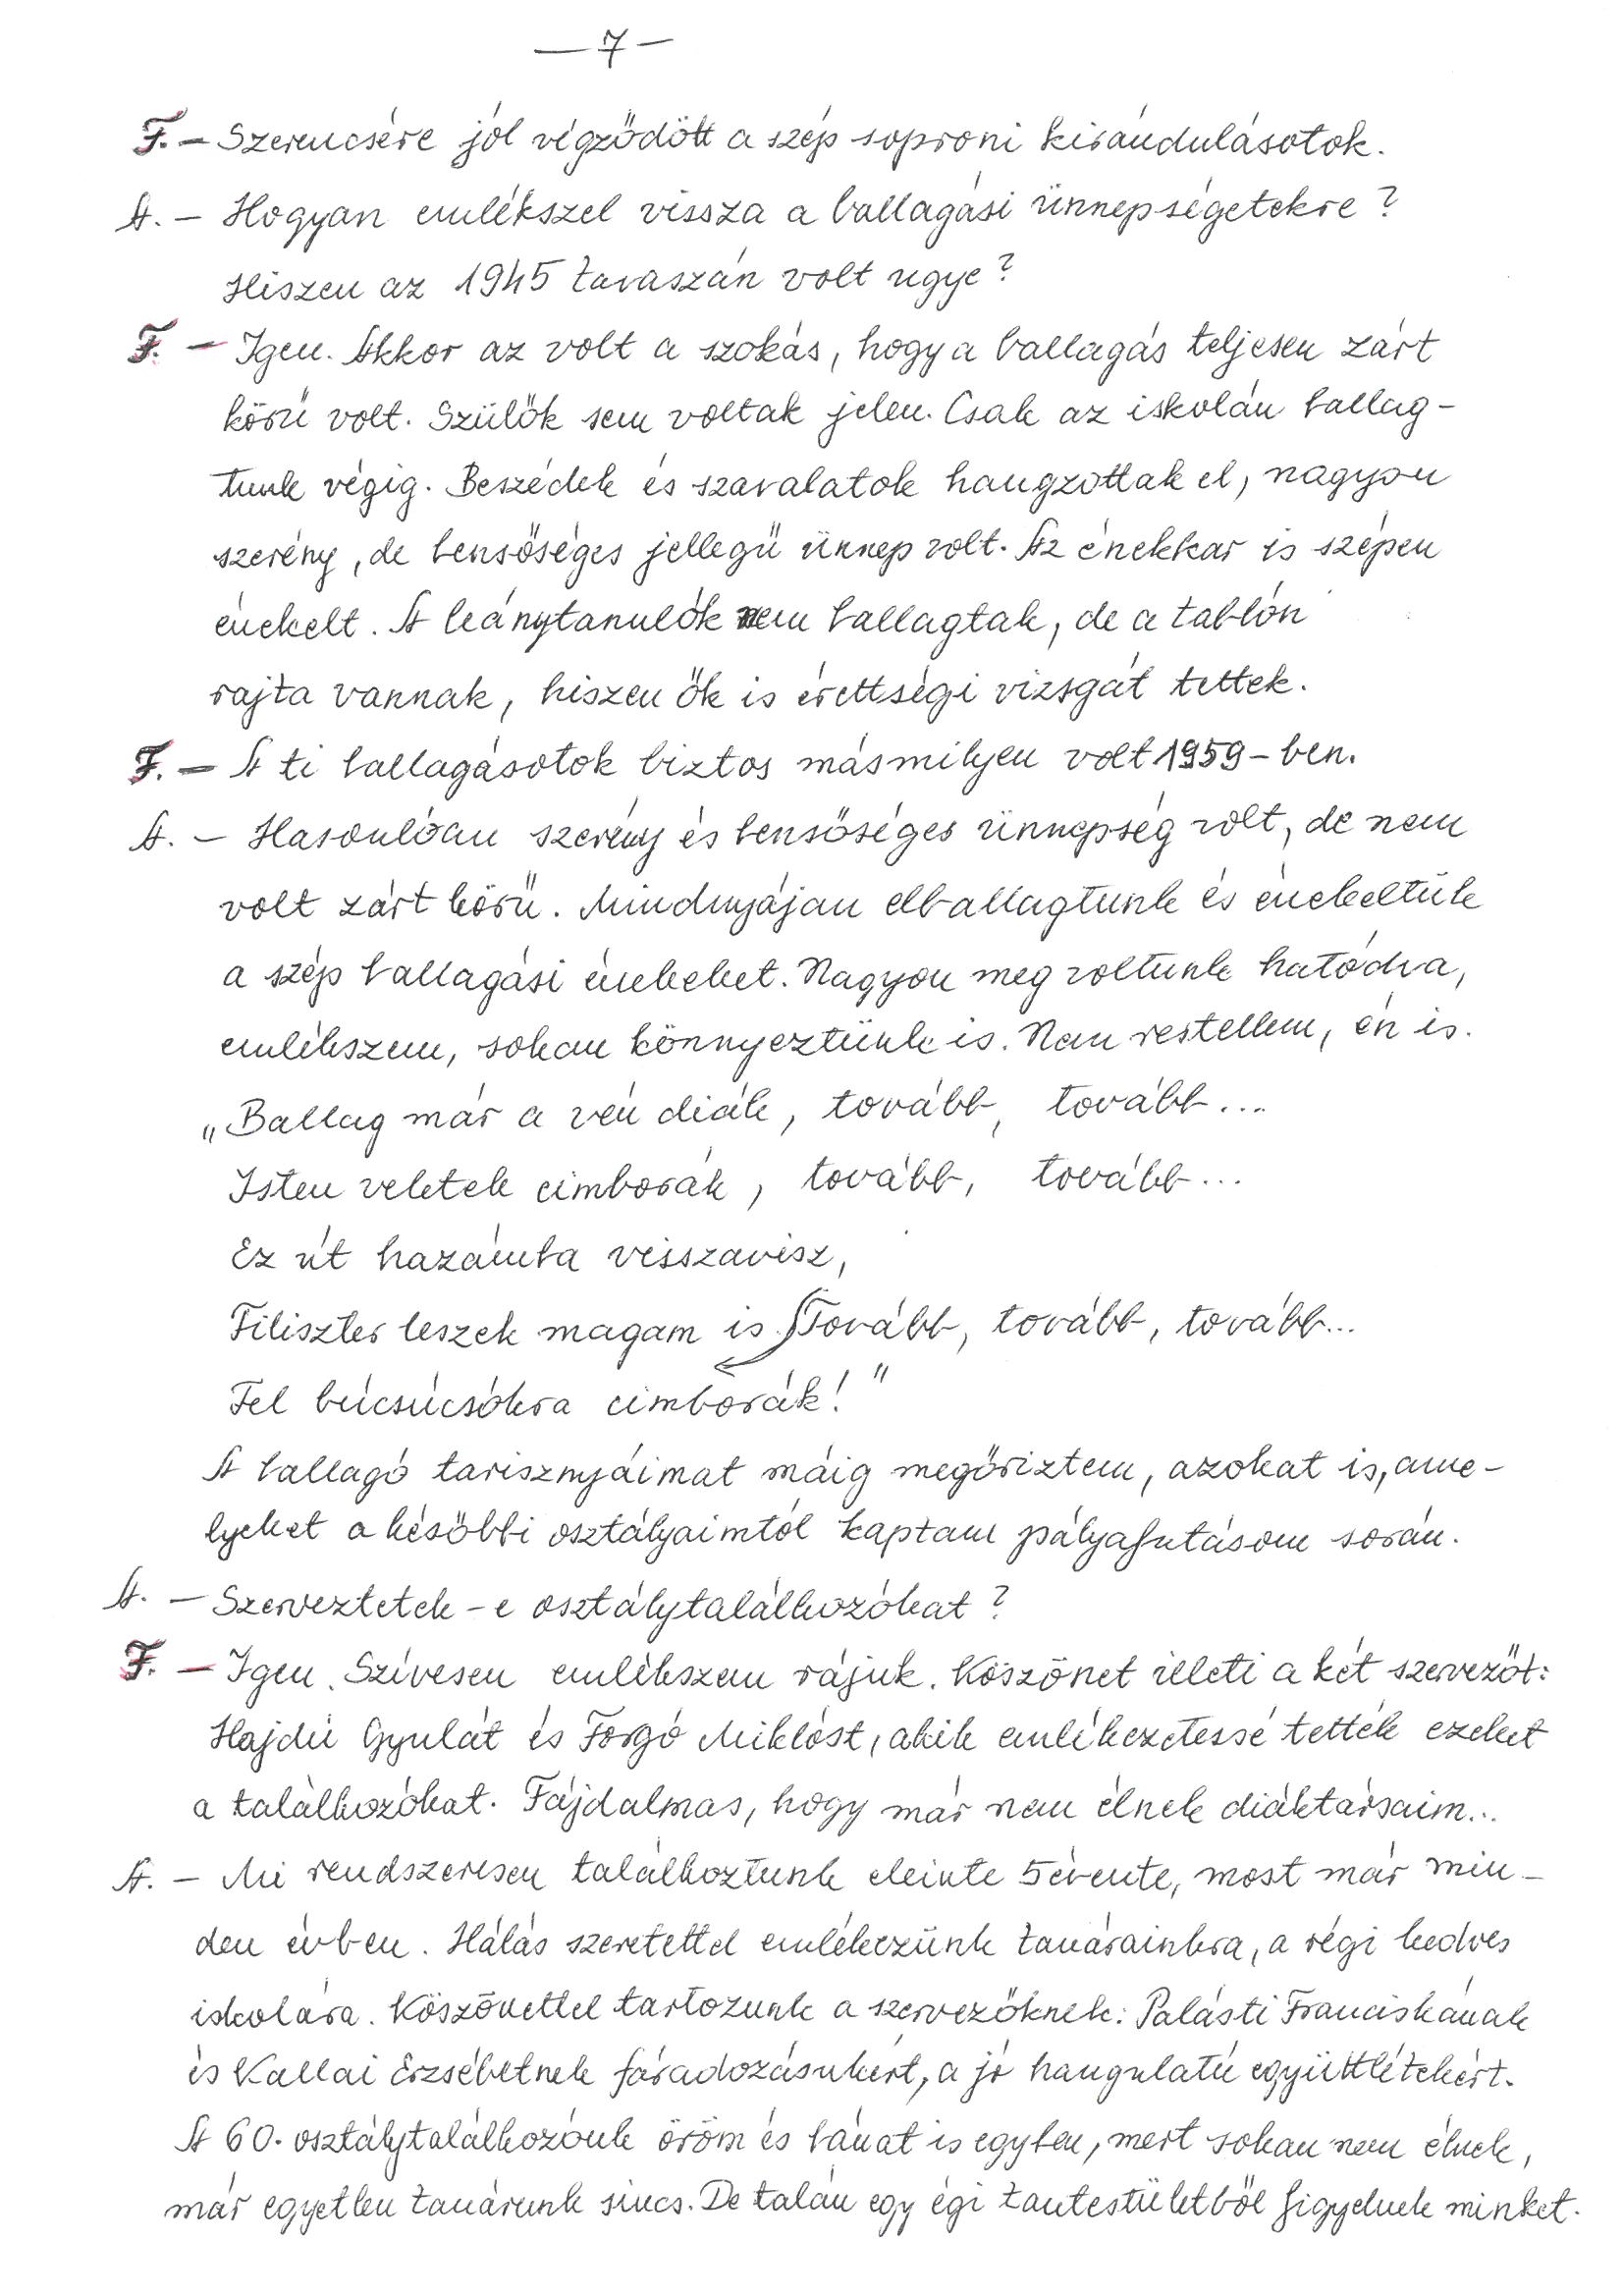 — 7 —
F. — Szerencsére jól végződött a szép soproni kirándulásotok.
A. — Hogyan emlékszel vissza a ballagási ünnepségetekre?
Hiszen az 1945 tavaszán volt ugye?
F. — Igen. Akkor az volt a szokás, hogy a ballagás teljesen zárt
körű volt. Szülők sem voltak jelen. Csak az iskolán ballag-
tunk végig. Beszédek és szavalatok hangzottak el, nagyon
szerény, de bensőséges jellegű ünnep volt. Az énekkar is szépen
énekelt. A leánytanulók nem ballagtak, de a tablón
rajta vannak, hiszen ők is érettségi vizsgát tettek.
F. — A ti ballagásotok biztos másmilyen volt 1959-ben.
A. — Hasonlóan szerény és bensőséges ünnepség volt, de nem
volt zárt körű. Mindnyájan elballagtunk és énekeltük
a szép ballagási énekeket. Nagyon meg voltunk hatódva,
emlékszem, sokan könnyeztünk is. Nem restellem, én is.
„Ballag már a vén diák, tovább, tovább...
Isten veletek cimborák, tovább, tovább...
Ez út hazámba visszavisz,
Filiszter leszek magam is. Tovább, tovább, tovább...
Fel búcsúcsókra cimborák!"
A ballagó tarisznyáimat máig megőriztem, azokat is, ame-
lyeket a későbbi osztályaimtól kaptam pályafutásom során.
A. — Szerveztetek-e osztálytalálkozókat?
F. — Igen. Szívesen emlékszem rájuk. Köszönet illeti a két szervezőt:
Hajdú Gyulát és Forgó Miklóst, akik emlékezetessé tették ezeket
a találkozókat. Fájdalmas, hogy már nem élnek diáktársaim...
A. — Mi rendszeresen találkoztunk eleinte 5 évente, most már min-
den évben. Hálás szeretettel emlékezünk tanárainkra, a régi kedves
iskolára. Köszönettel tartozunk a szervezőknek: Palásti Franciskának
és Kallai Erzsébetnek fáradozásukért, a jó hangulatú együttlétekért.
A 60. osztálytalálkozónk öröm és bánat is egyben, mert sokan nem élnek,
már egyetlen tanárunk sincs. De talán egy égi tantestületből figyelnek minket.